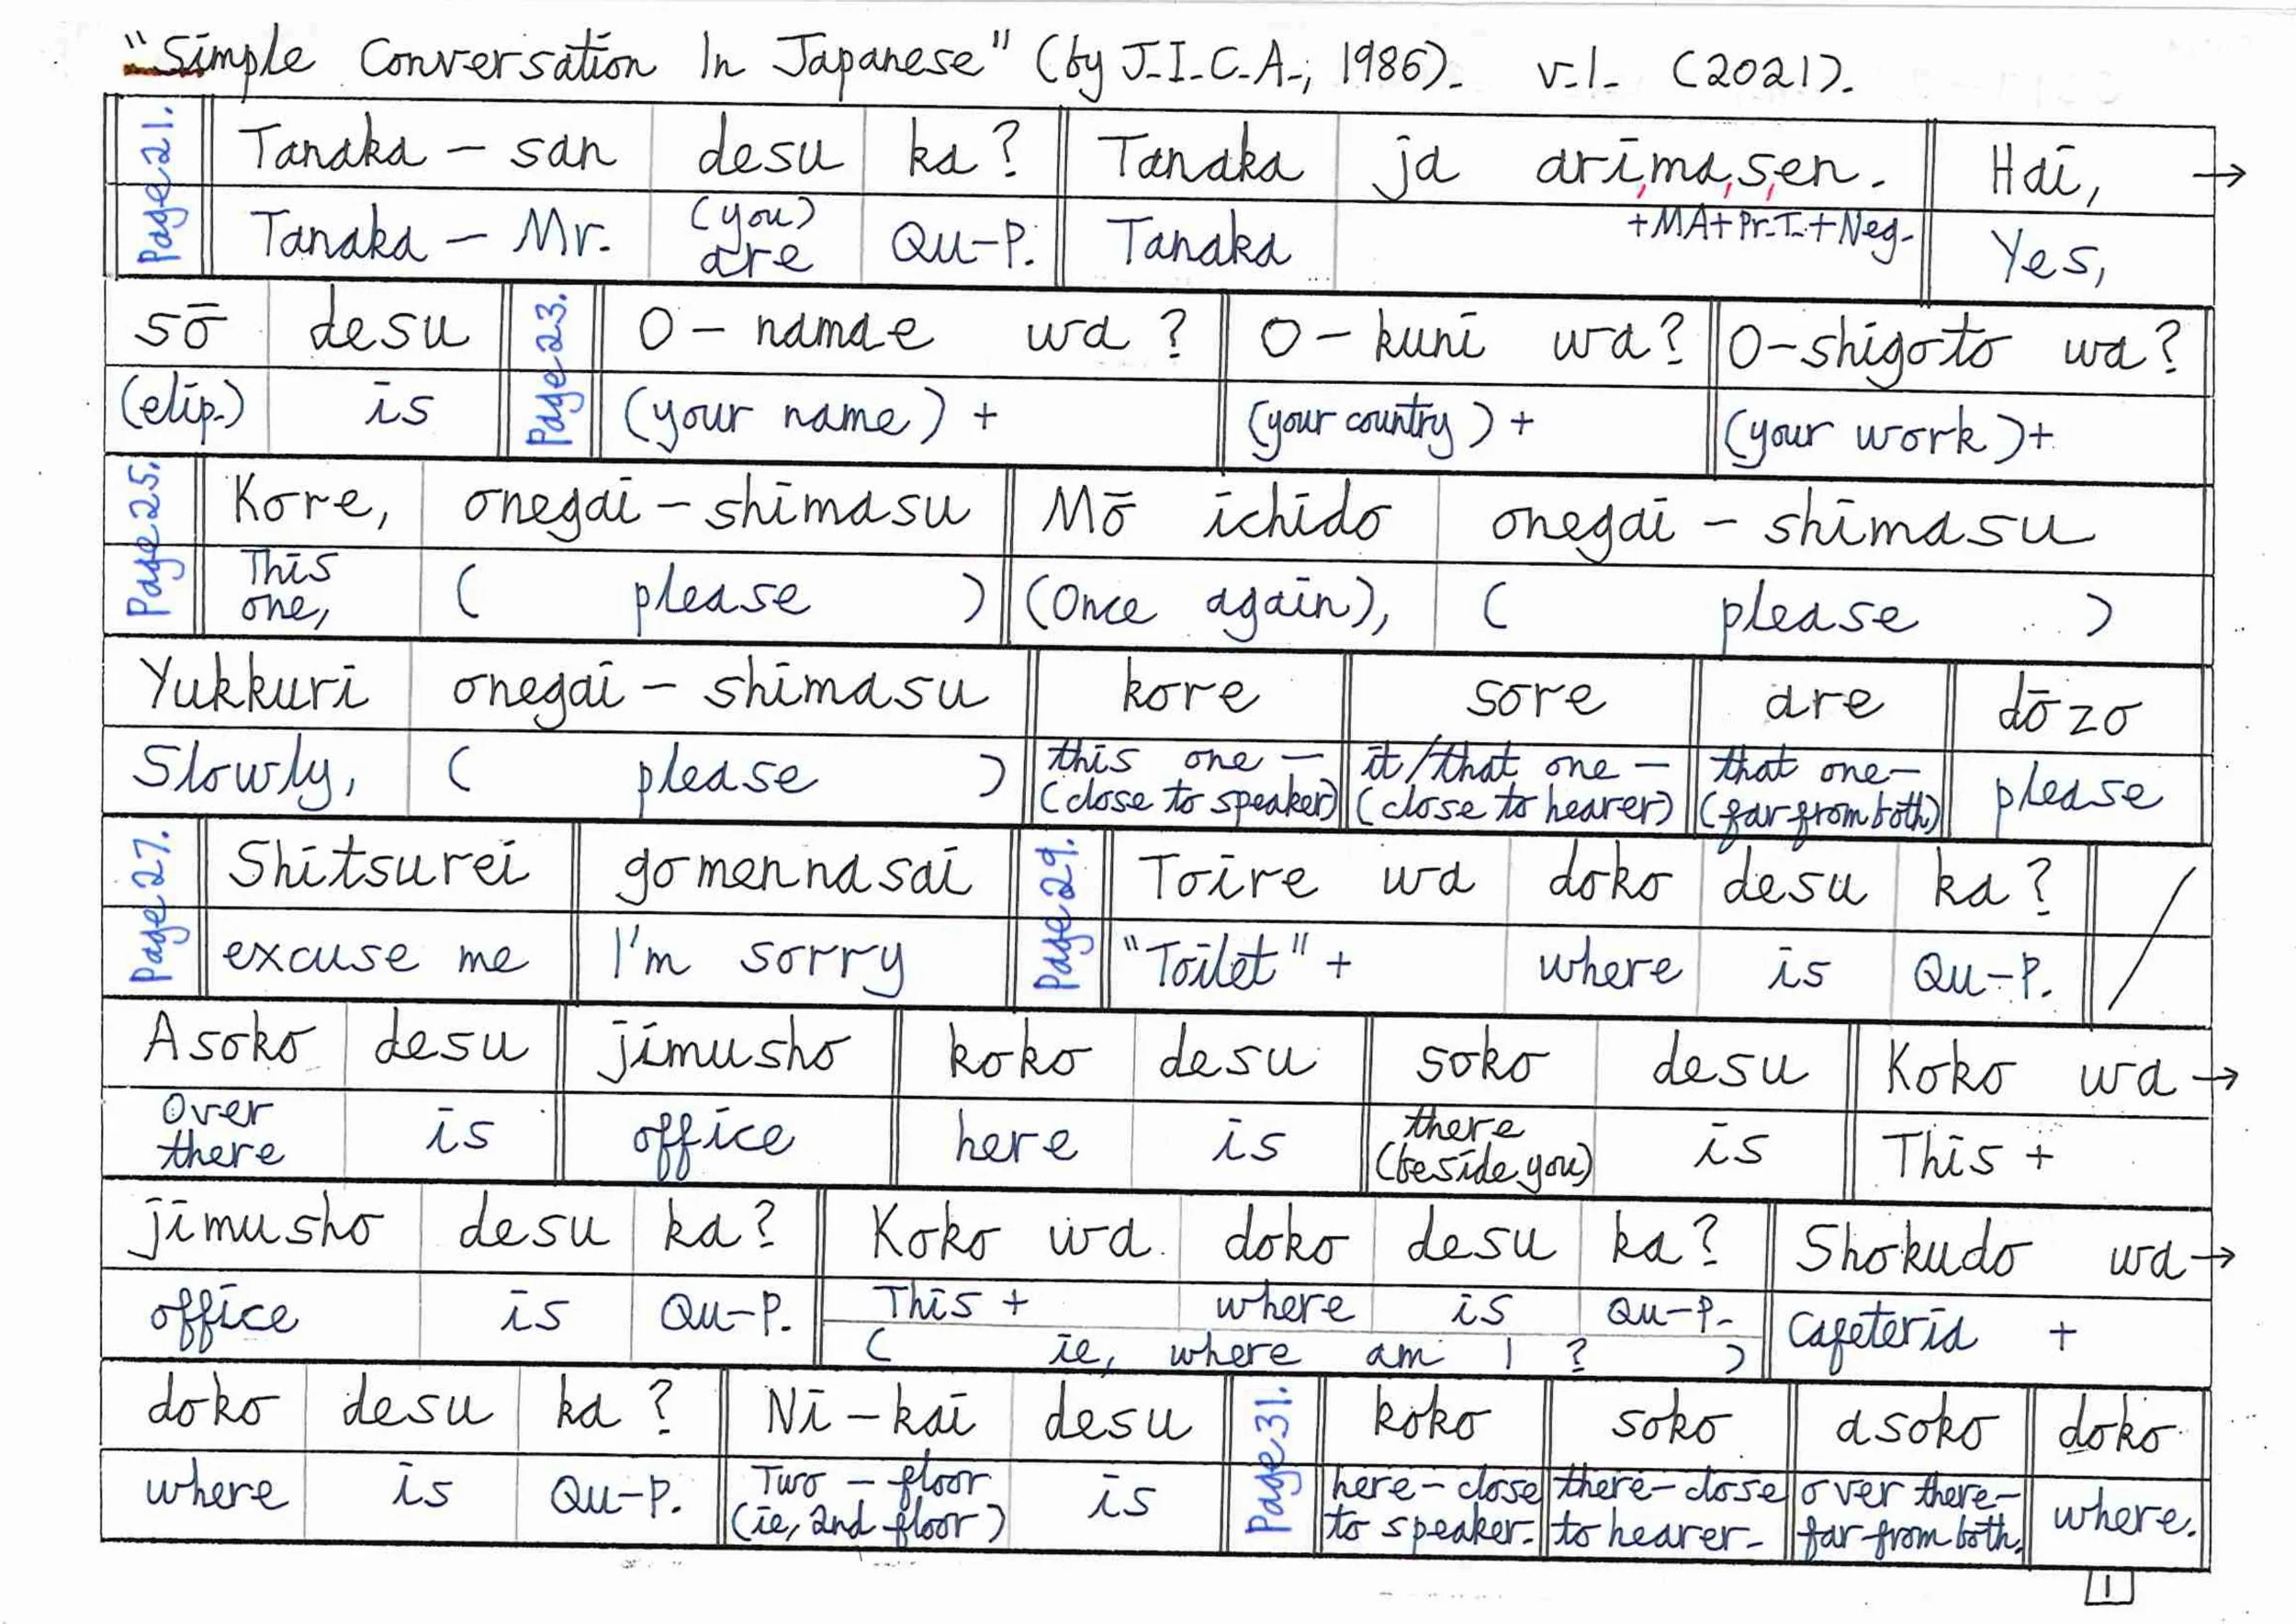 "Simple Conversation In Japanese" (by J.I.C.A., 1986). v.1. (2021).
Page 21. Tanaka – san desu ka? Tanaka ja arimasen. Hai, →
Tanaka – Mr. (you) are Qu–P. Tanaka +MA+Pr.T.+Neg. Yes,
sō desu Page 23. O – namae wa? O – kuni wa? O–shigoto wa?
(elip.) is (your name) + (your country) + (your work) +
Page 25. Kore, onegai – shimasu Mō ichido onegai – shimasu
This one, ( please ) (Once again), ( please )
Yukkuri onegai – shimasu kore sore are dōzo
Slowly, ( please ) this one – (close to speaker) it/that one – (close to hearer) that one – (far from both) please
Page 27. Shitsurei gomennasai Page 29. Toire wa doko desu ka? /
excuse me I'm sorry "Toilet" + where is Qu–P.
Asoko desu jimusho koko desu soko desu Koko wa →
Over there is office here is there (beside you) is This +
jimusho desu ka? Koko wa doko desu ka? Shokudo wa →
office is Qu–P. This + where is Qu–P. Cafeteria +
( ie, where am I ? )
doko desu ka? Ni – kai desu Page 31. koko soko asoko doko
where is Qu–P. Two – floor (ie, 2nd floor) is here – close to speaker. there – close to hearer. over there – far from both. where.
1